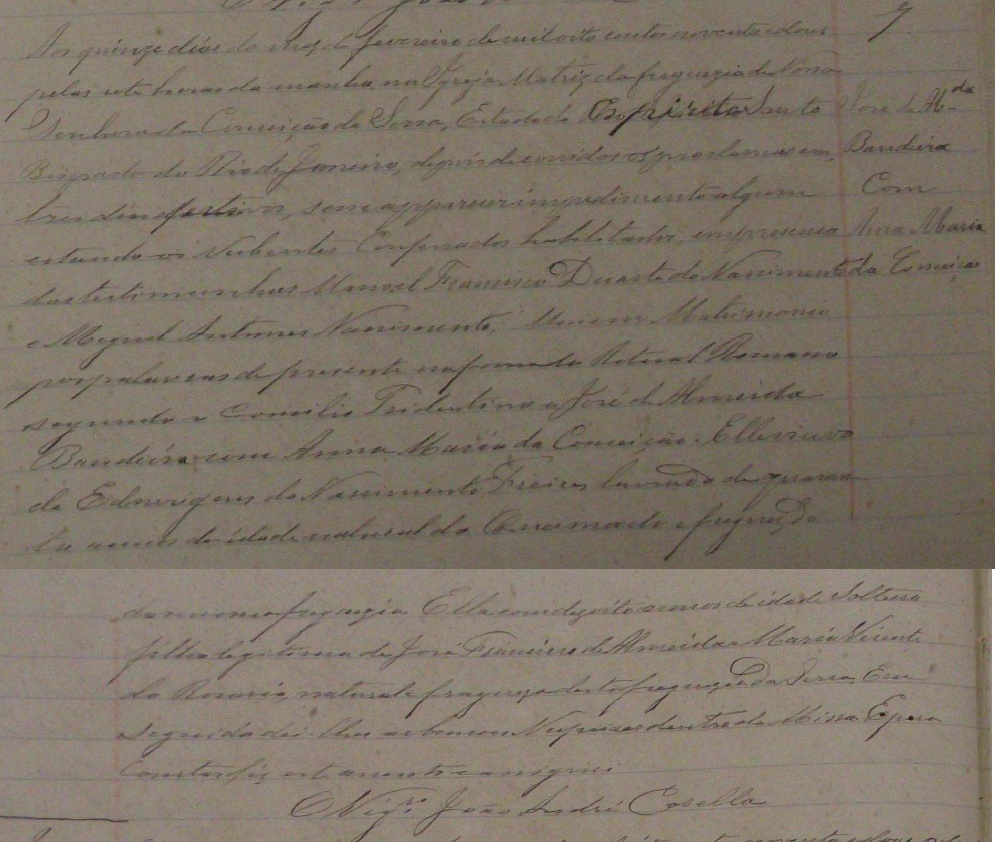 Aos quinze dias do mes de fevereiro de mil oito centos noventa e dous
pelas sete horas da manhã, na Igreja Matriz da freguezia de Nossa
Senhora da Conceição da Serra, Estado do Espirito Santo
Bispado do Rio de Janeiro, depois de corridos os proclamas em
tres dias festivos, sem apparecer impedimento algum
estando os Nubentes Confessados habilitados, em presença
das testimunhas Manoel Francisco Duarte do Nascimento
e Miguel Antunes Nascimento, Matrimonio
por palavras de presente na forma do Ritual Romano
segundo o Concilio Tridentino a José de Almeida
Bandeira com Anna Maria da Conceição. Elle viuvo
de Edwirges do Nascimento Freires, lavrado de quaren
ta annos de idade natural do Queimado e freguez da
7
José de Alda
Bandeira
Com
Anna Maria
da Conceição
da mesma freguezia Ella com desoito annos de idade Solteira
filha legitima de José Francisco de Almeida e Maria Vicente
do Rosario, natural e fregueza desta freguezia da Serra, Em
seguida dei-lhes as bençoes Nupciaes dentro da Missa E para
Constar fiz este assento e assignei
Vigro João André Casella